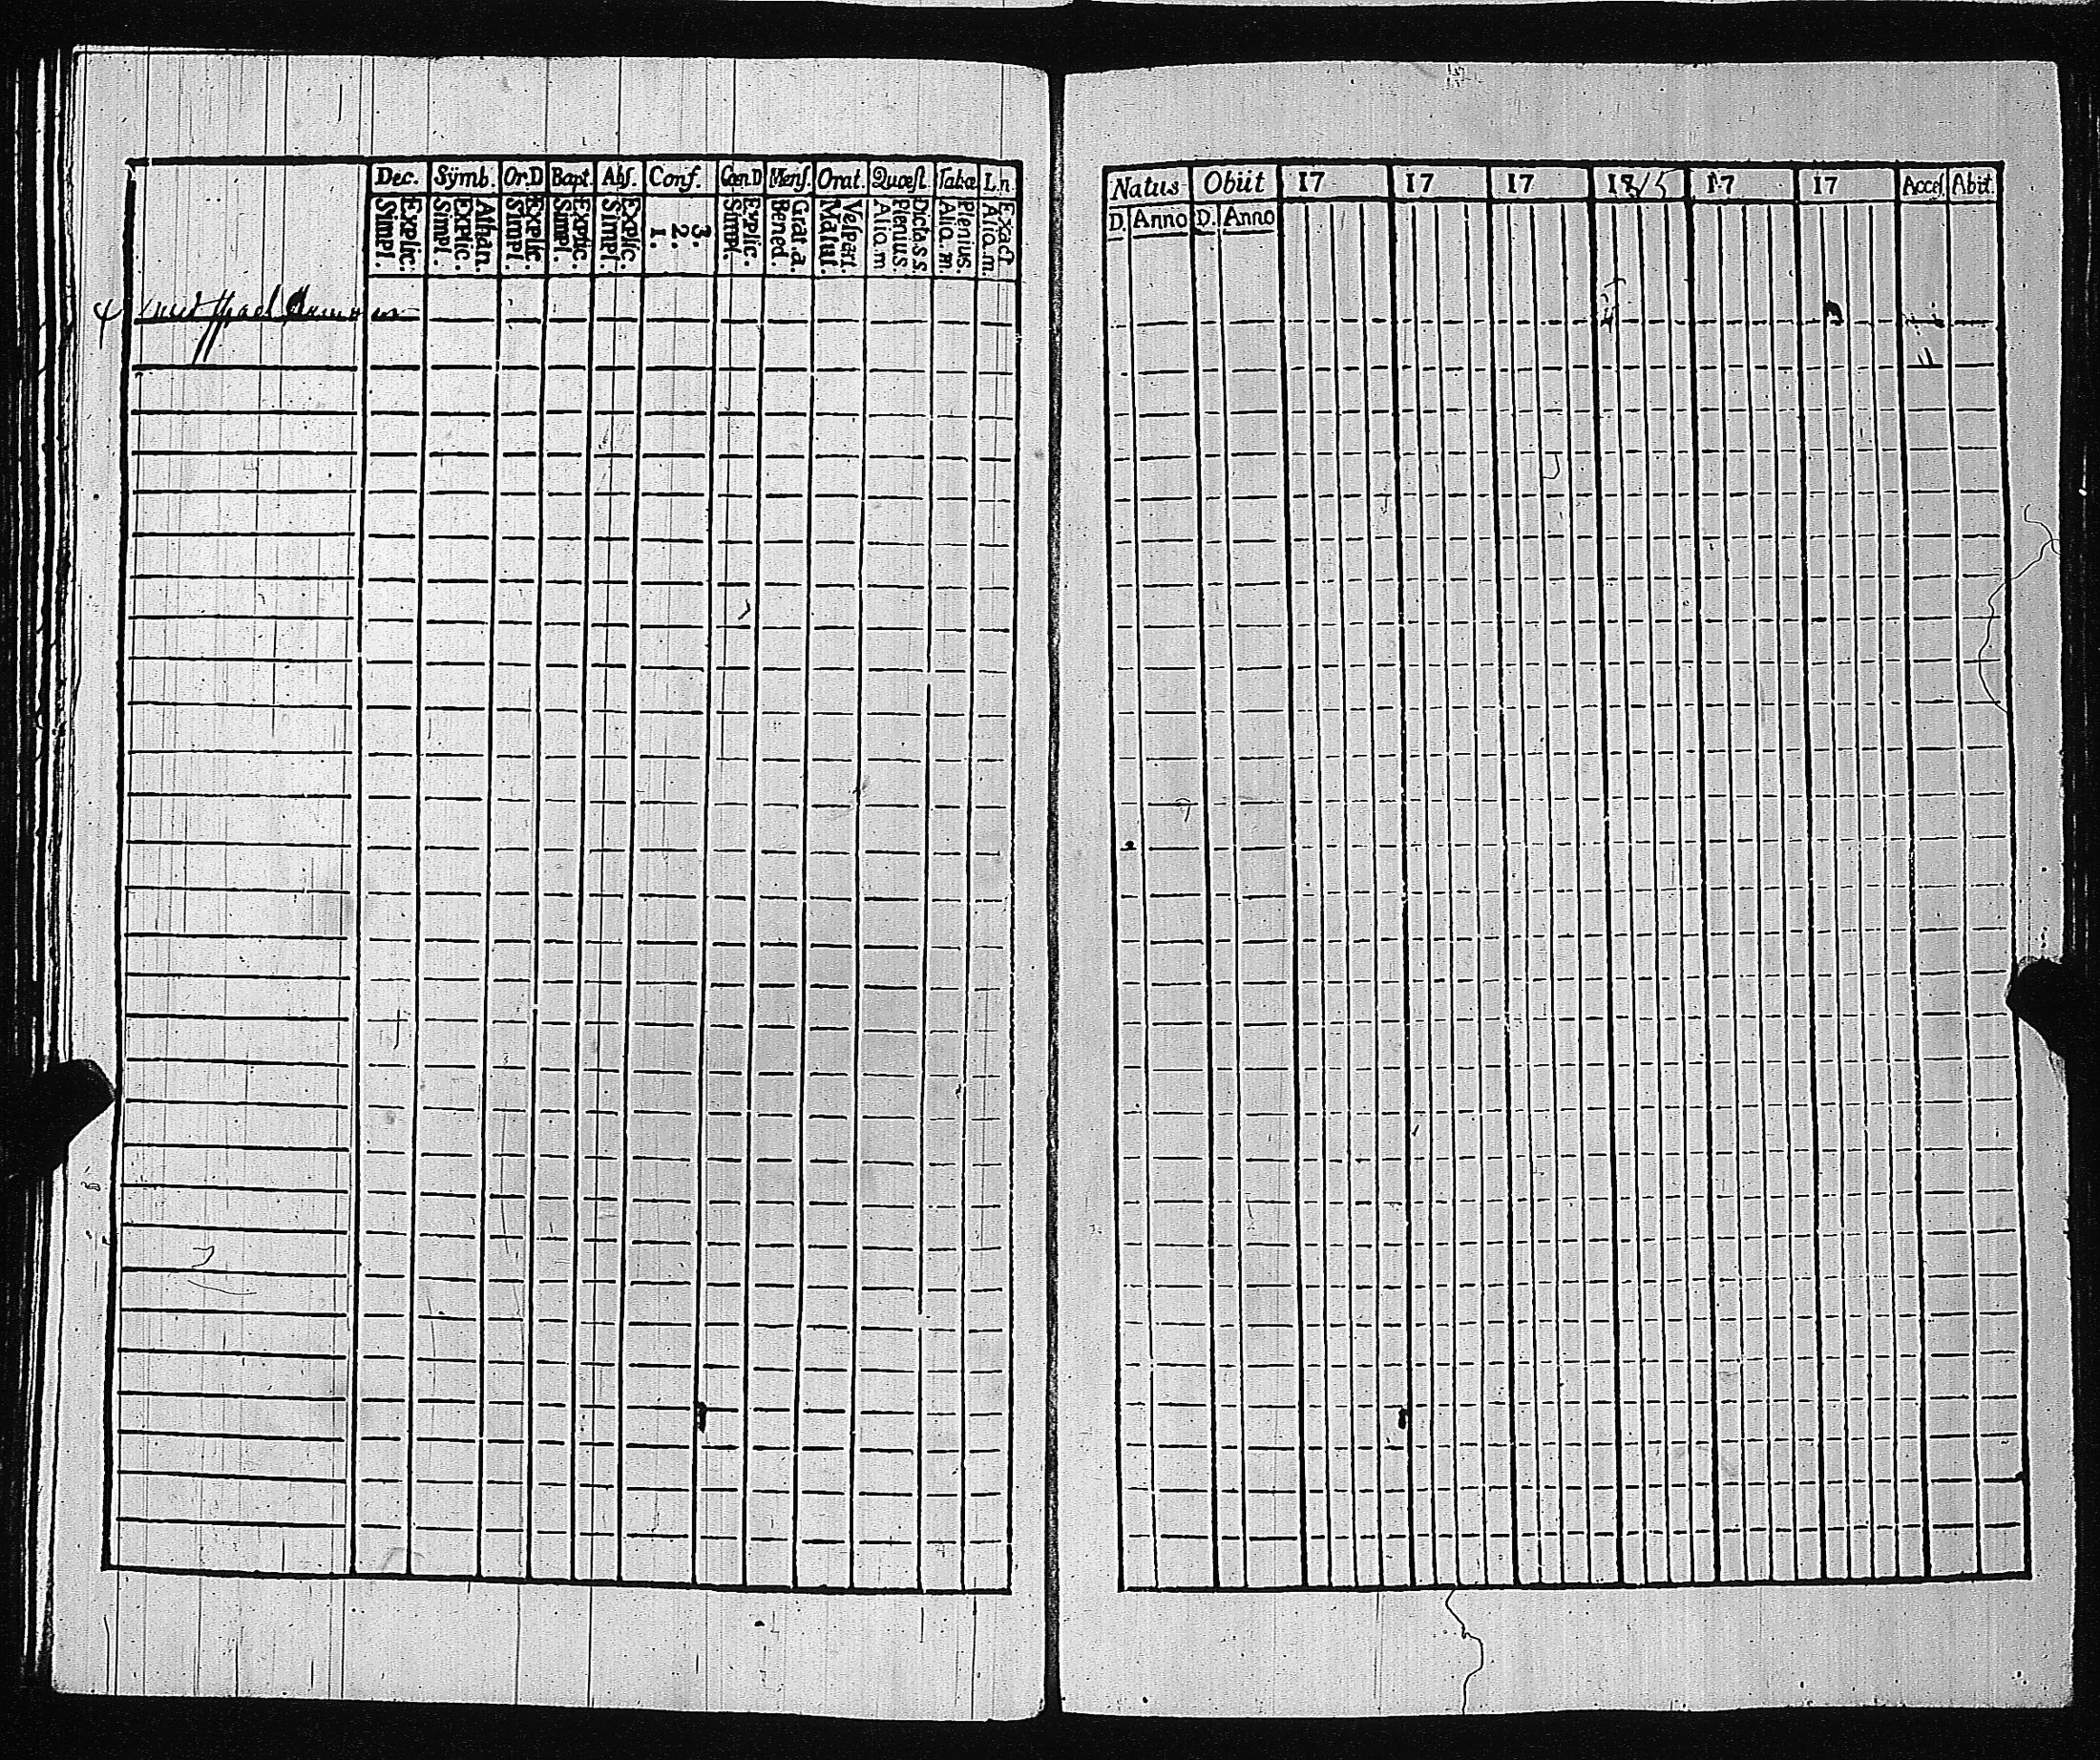 Dec. Sÿmb. Or.D Bapt. Abs. Conf. Cœn.D Mens. Orat. Quæst. Tabæ L.n
Explic. Simpl. Athan. Explic. Simpl. Explic. Simpl. Explic. Simpl. Explic. Simpl. 3. 2. 1. Explic. Simpl. Grat.a. Bened. Vesperi. Matut. Dicta.s.s. Plenius. Alio.m Plenius. Alio.m. Exact Alio.m.
Natus Obiit 17 17 17 1815 17 17 Acces Abiit
D. Anno D. Anno